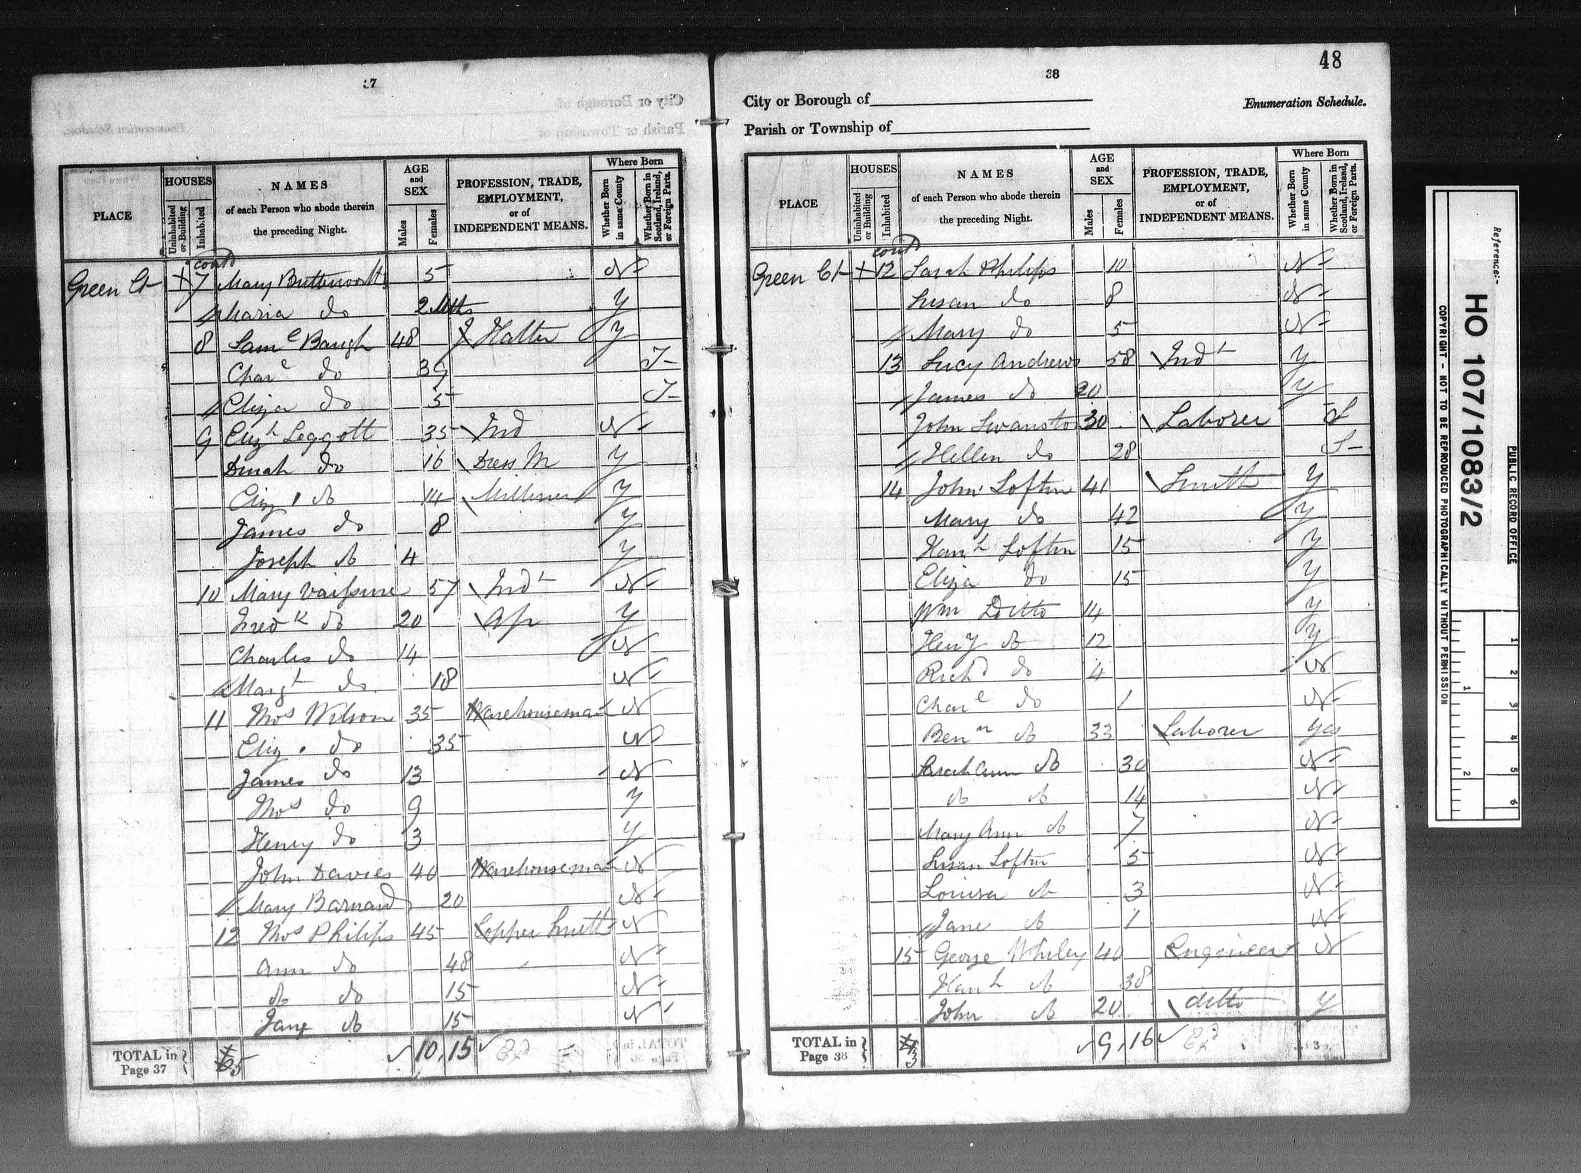 37
City or Borough of
Enumeration Schedule.
Parish or Township of
PLACE
HOUSES
Uninhabited or Building
Inhabited
NAMES
of each Person who abode therein
the preceding Night.
AGE
and
SEX
Males
Females
PROFESSION, TRADE,
EMPLOYMENT,
or of
INDEPENDENT MEANS.
Where Born
Whether Born in same County
Whether Born in Scotland, Ireland, or Foreign Parts.
contd
Green Ct + 7 Mary Butterworth 5 N
Maria do 2 Mths y
8 Saml Baugh 48 Hatter y
Chare do 39 I
Eliza do 5 I
9 Elizh Leggott 35 Ind N
Dinah do 16 Dress M y
Eliz do 14 Milliner y
James do 8 y
Joseph do 4 y
10 Mary 57 Indt N
Fredk do 20 Ap y
Charles do 14 N
Margt do 18 N
11 Thos Wilson 35 Warehouseman N
Eliz. do 35 N
James do 13 N
Thos do 9 y
Henry do 3 y
John Davies 40 Warehouseman N
Mary Barnard 20 N
12 Thos Philips 45 Copper Smith N
Ann do 48 N
do do 15 N
Jane do 15 N
TOTAL in
Page 37
5 10 15
48
38
City or Borough of
Enumeration Schedule.
Parish or Township of
PLACE
HOUSES
Uninhabited or Building
Inhabited
NAMES
of each Person who abode therein
the preceding Night.
AGE
and
SEX
Males
Females
PROFESSION, TRADE,
EMPLOYMENT,
or of
INDEPENDENT MEANS.
Where Born
Whether Born in same County
Whether Born in Scotland, Ireland, or Foreign Parts.
contd
Green Ct + 12 Sarah Philips 10 N
Susan do 8 N
Mary do 5 N
13 Lucy Andrews 58 Indt y
James do 20 y
John Swanston 30 Laborer S
Hellen do 28 S
14 John Loftin 41 Smith y
Mary do 42 y
Hanh Loftin 15 y
Eliza do 15 y
Wm Ditto 14 y
Heny do 12 y
Richd do 4 N
Chare do 1 N
Benn do 33 Laborer yes
Sarah Ann do 30 N
do do 14 N
Mary Ann do 7 N
Susan Loftin 5 N
Louisa do 3 N
Jane do 1 N
15 George Whiley 40 Engineer N
Hanh do 38
John do 20 ditto y
TOTAL in
Page 38
3 9 16
Reference:-
HO 107/1083/2
PUBLIC RECORD OFFICE
COPYRIGHT - NOT TO BE REPRODUCED PHOTOGRAPHICALLY WITHOUT PERMISSION
1
2
1
2
3
4
5
6